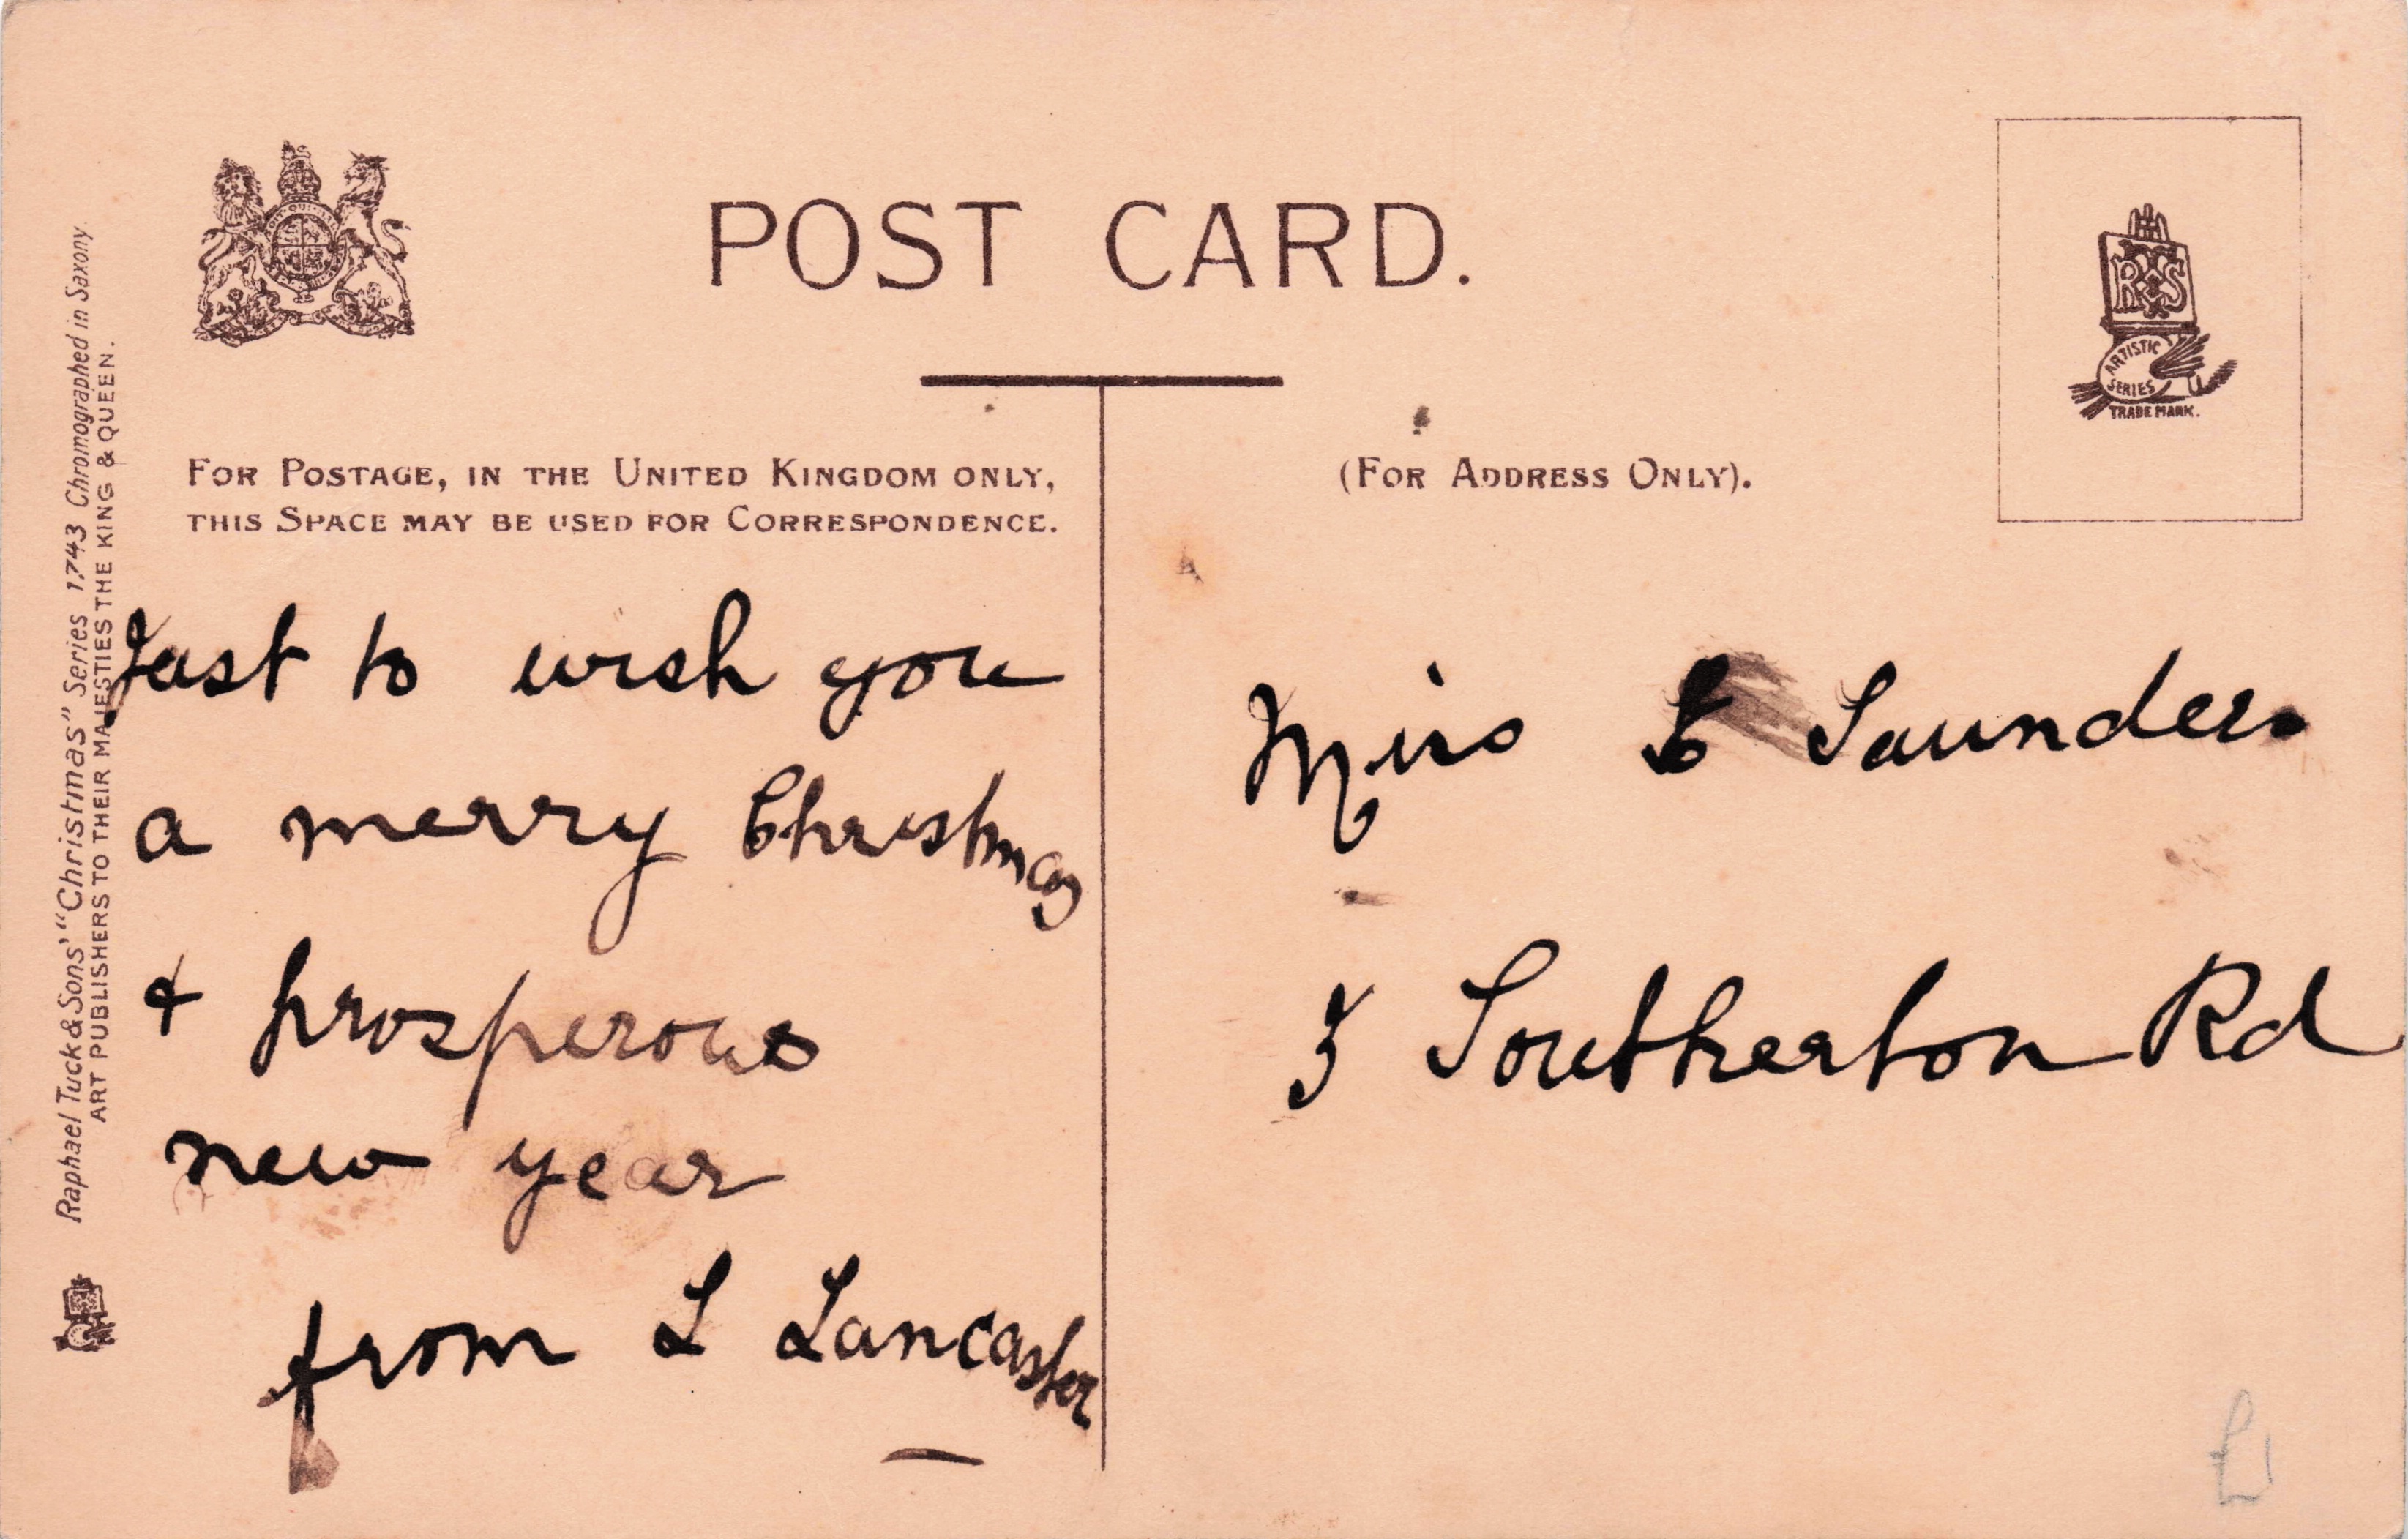 POST CARD.
FOR POSTAGE, IN THE UNITED KINGDOM ONLY,
THIS SPACE MAY BE USED FOR CORRESPONDENCE.
Just to wish you
a merry Christmas
& prosperous
new year
from L Lancaster
(FOR ADDRESS ONLY).
Miss Saunders
3 Southerton Rd
R&S
ARTISTIC
SERIES
TRADE MARK.
Raphael Tuck & Sons' "Christmas" Series 1,743 Chromographed in Saxony
ART PUBLISHERS TO THEIR MAJESTIES THE KING & QUEEN.
£1